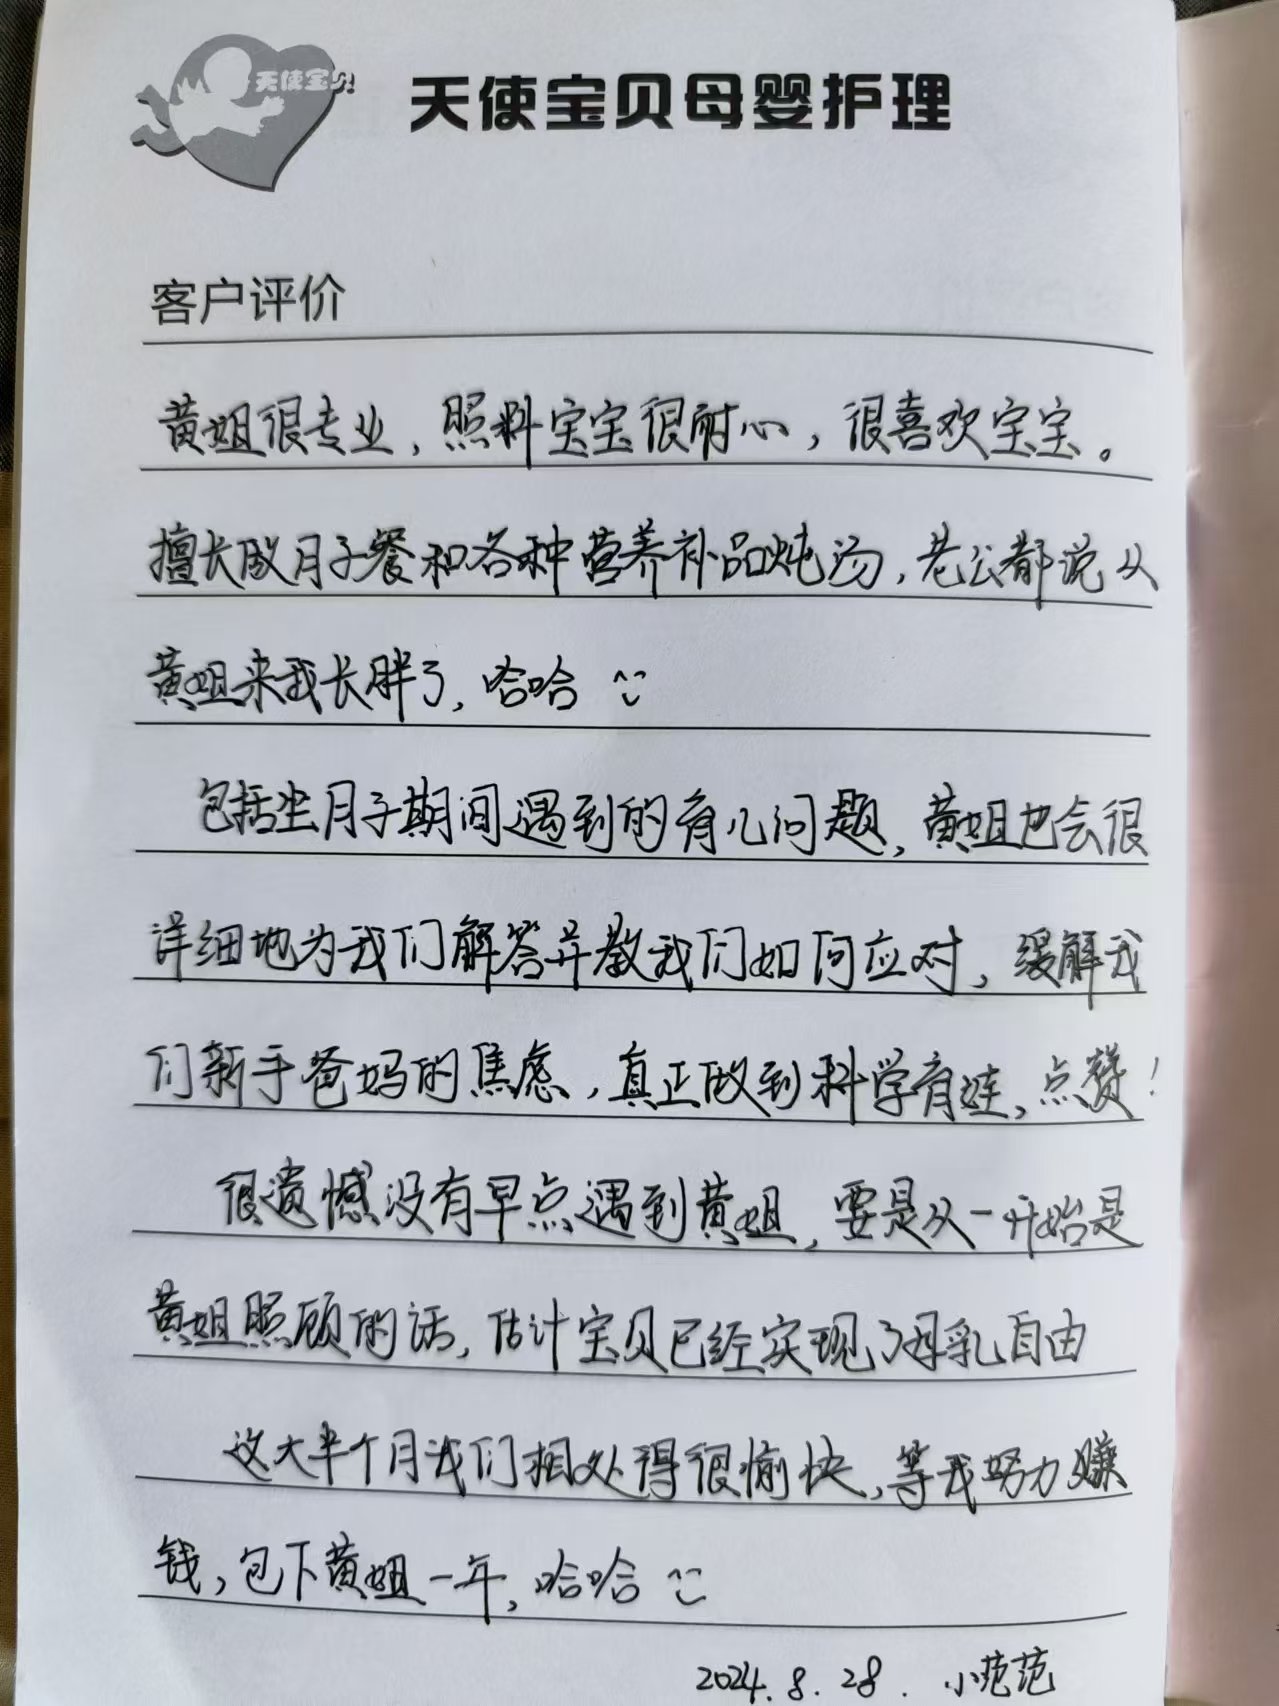 天使宝贝
天使宝贝母婴护理
客户评价
黄姐很专业，照料宝宝很耐心，很喜欢宝宝。
擅长做月子餐和各种营养补品炖汤，老公都说从
黄姐来我长胖了，哈哈
包括坐月子期间遇到的育儿问题，黄姐也会很
详细地为我们解答并教我们如何应对，缓解我
们新手爸妈的焦虑，真正做到科学育娃，点赞！
很遗憾没有早点遇到黄姐，要是从一开始是
黄姐照顾的话，估计宝贝已经实现了母乳自由
这大半个月我们相处得很愉快，等我努力赚
钱，包下黄姐一年，哈哈
2024.8.28. 小范范